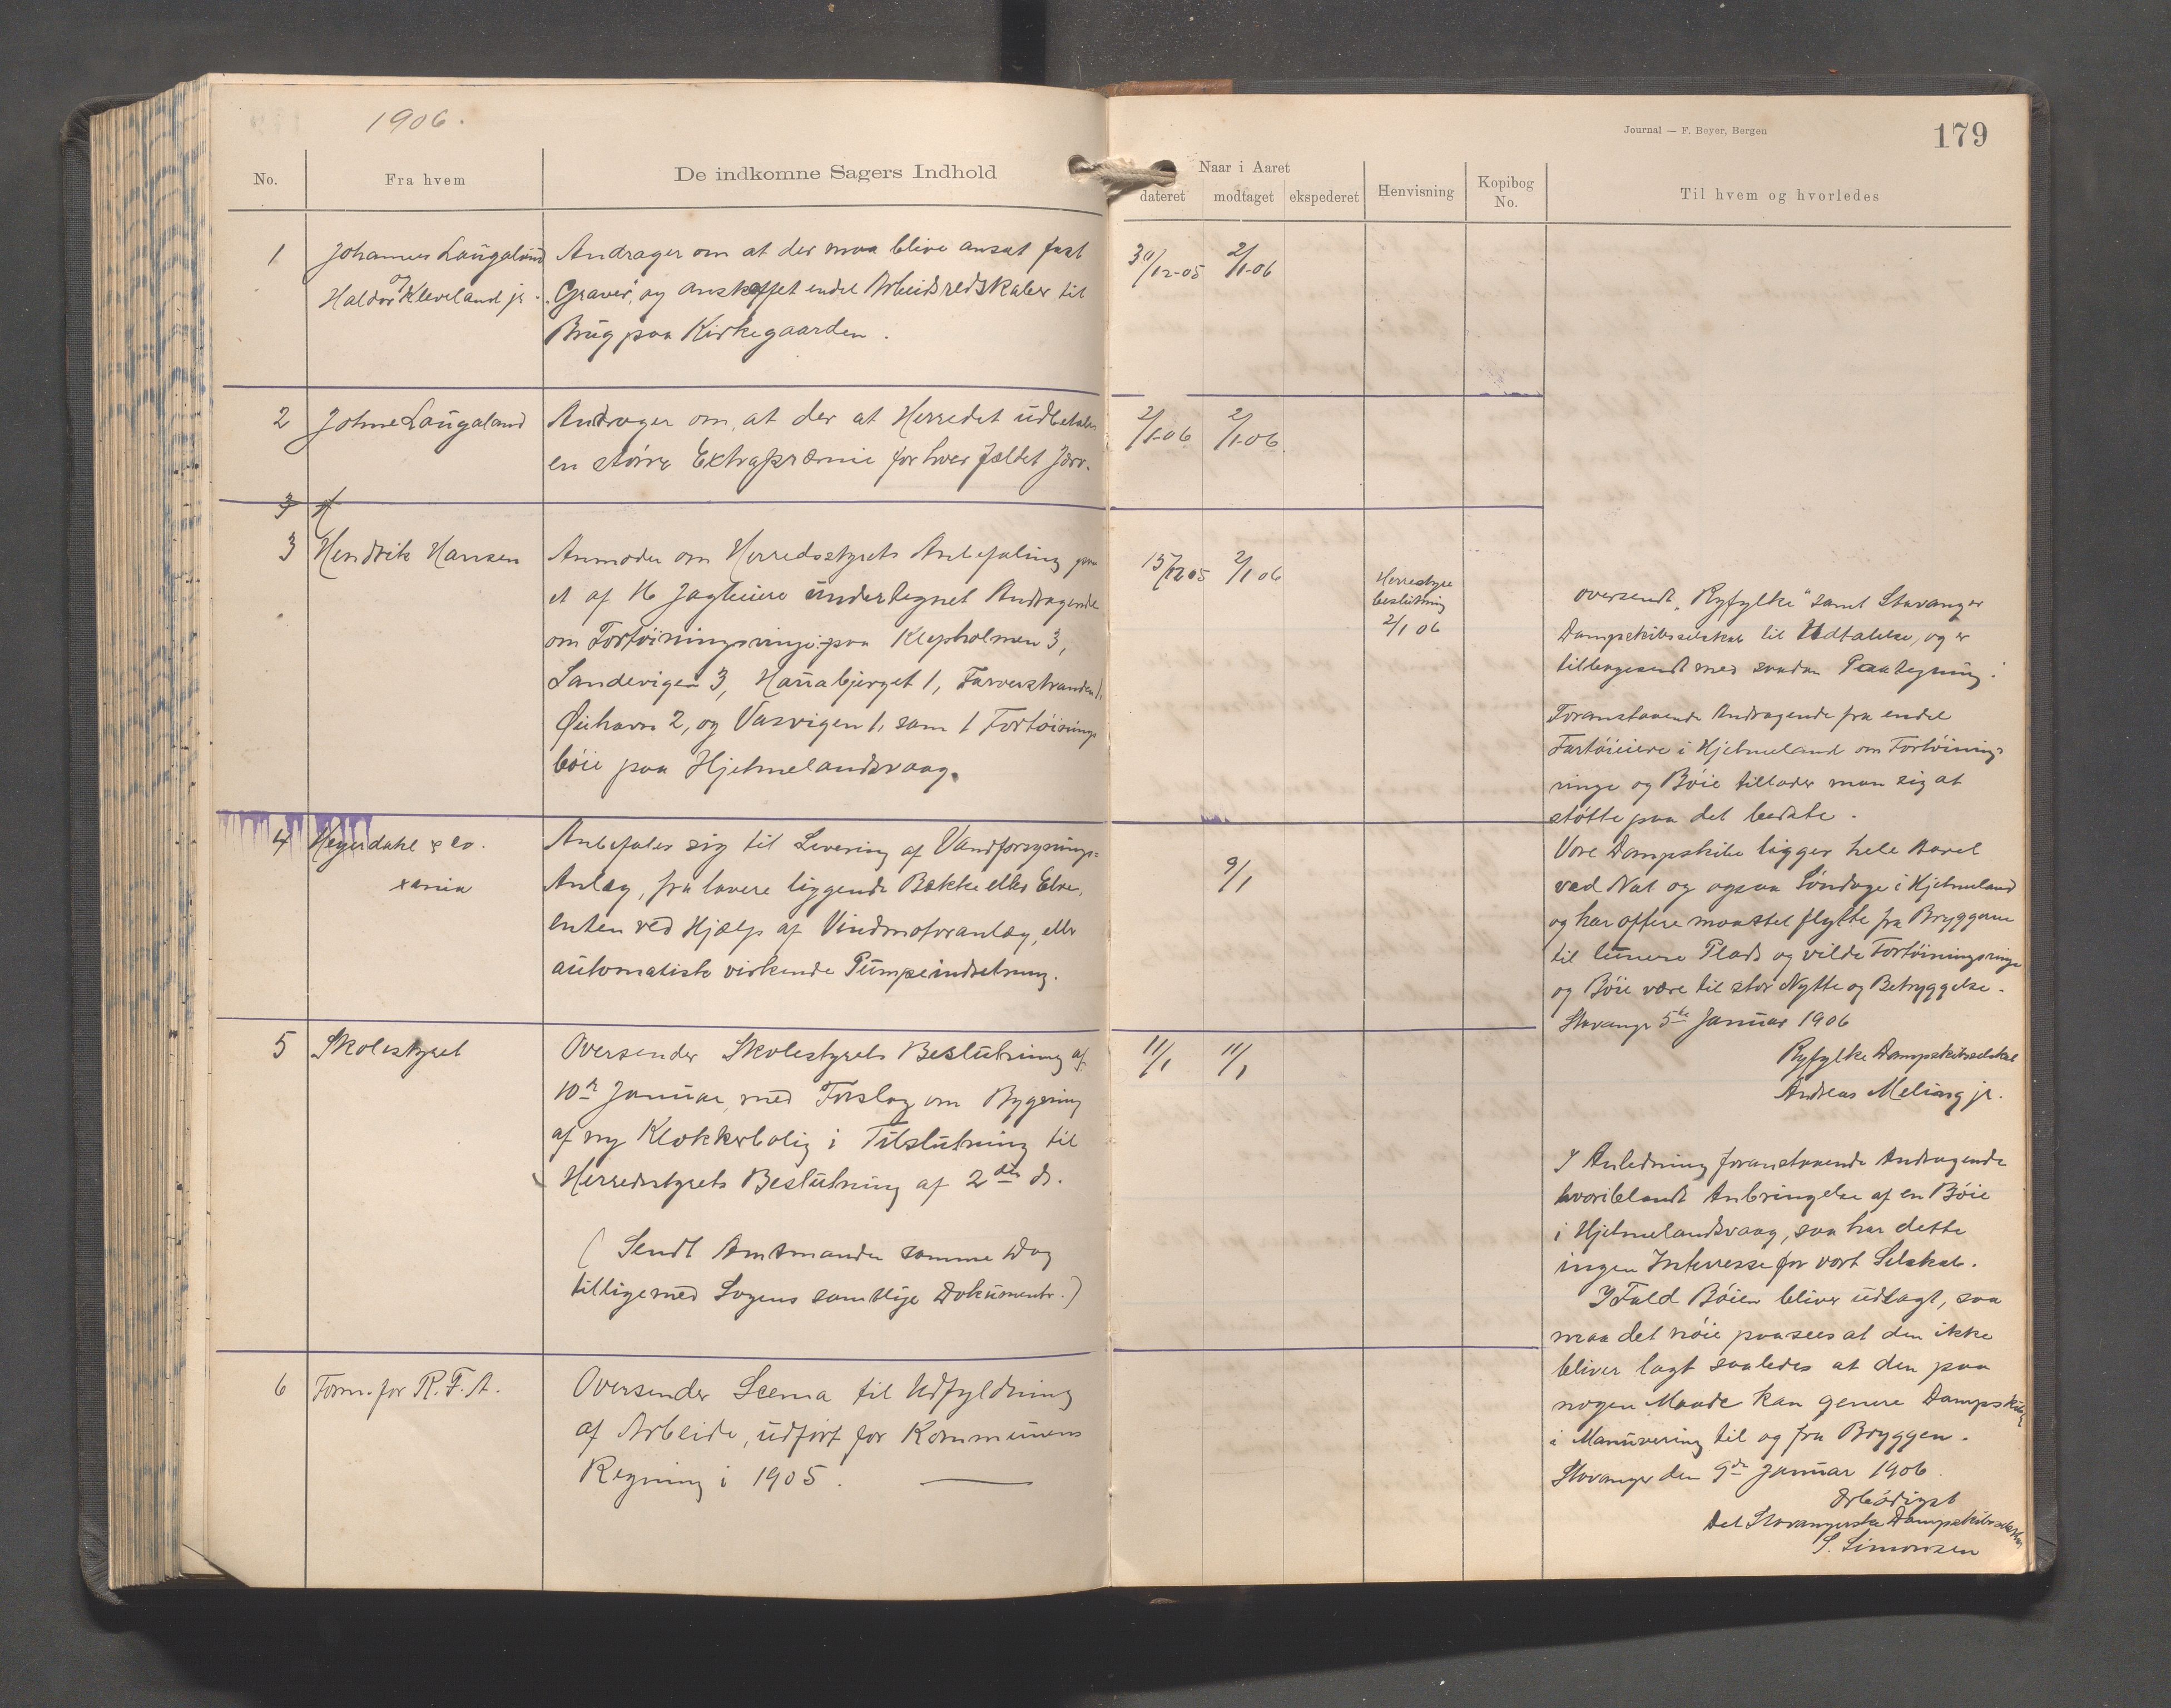 1906.
Journal — F. Beyer, Bergen
179
No.
Fra hvem
De indkomne Sagers Indhold
Naar i Aaret
dateret
modtaget
ekspederet
Henvisning
Kopibog No.
Til hvem og hvorledes
1
Johannes Laugaland
og
Haldor Kleveland jr.
Andrager om at der maa blive ansat fast
"Graver", og anskaffet endel Arbeidsredskaber til
Brug paa Kirkegaarden.
30/12-05
2/1-06
2
Johne Laugaland
Andrager om, at der at Herredet udbetales
en større Extrapræmie for hver fældet Jærv.
2/1-06
2/1-06
3
3
Hendrik Hansen
Anmoder om Herredsstyrets Anbefaling paa
et af 16 Jagteiere undertegnet Andragende
om Fortøiningsringe paa Klepholmen 3,
Sandevigen 3, Hauabjerget 1, Farverstranden 1,
Øihavn 2, og Vasvigen 1, sam 1 Fortøinings
bøie paa Hjelmelandsvaag.
15/12 05
2/1 06
Herrestyre
beslutning
2/1 06
oversendt "Ryfylke" samt Stavanger
Dampskibsselskab til Udtalelse, og er
tilbagesendt med saadan Paategning:
Foranstaaende Andragende fra endel
Fartøieiere i Hjelmeland om Fortøinings
ringe og Bøie tillader man sig at
støtte paa det bedste.
Vore Dampskibe ligger hele Aaret
ved Nat og ogsaa Søndage i Hjelmeland
og har oftere maattet flytte fra Bryggerne
til lunere Plads og vilde Fortøiningsringe
og Bøie være til stor Nytte og Betryggelse.
Stavanger 5te Januar 1906
Ryfylke Dampskibsselskab
Andreas Meling jr.
I Anledning foranstaaende Andragende
hvoriblandt Anbringelse af en Bøie
i Hjelmelandsvaag, saa har dette
ingen Interesse for vort Selskab.
I Fald Bøien bliver udlagt, saa
maa det nøie paasees at den ikke
bliver lagt saaledes at den paa
nogen Maade kan genere Dampskibe
i Manuvering til og fra Bryggen.
Stavanger den 9de Januar 1906
Ærbødigst
Det Stavangerske Dampskibsselskab
S. Simonsen
4
Heyerdahl & Co.
xania
Anbefaler sig til Levering af Vandforsynings-
Anlæg, fra lavere liggende Bække eller Elve,
enten ved Hjælp af Vindmotoranlæg, eller
automatisk virkende Pumpeindretning.
9/1
5
Skolestyret
Oversender Skolestyrets Beslutning af
10de Januar, med Forslag om Bygning
af ny Klokkerbolig i Tilslutning til
Herredsstyrets Beslutning af 2den ds.
(Sendt Amtmanden samme Dag
tilligemed Sagens samtlige Dokumenter.)
11/1
11/1
6
Form. for R.F.A.
Oversender Scema til Udfyldning
af Arbeide, udført for Kommunens
Regning i 1905.